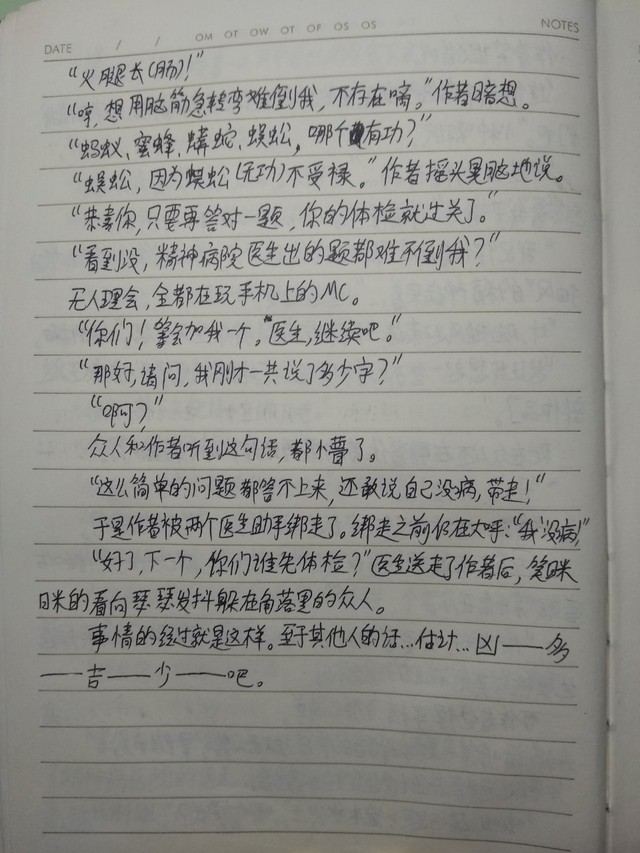 DATE / / OM OT OW OT OF OS OS NOTES
“火腿长(肠)！”
“哼，想用脑筋急转弯难倒我，不存在嘀。”作者暗想。
“蚂蚁、蜜蜂、蟒蛇、蜈蚣，哪个有功？”
“蜈蚣，因为蜈蚣(无功)不受禄。”作者摇头晃脑地说。
“恭喜你，只要再答对一题，你的体检就过关了。”
“看到没，精神病院医生出的题都难不倒我？”
无人理会，全都在玩手机上的MC。
“你们！等会加我一个。”“医生，继续吧。”
“那好，请问，我刚才一共说了多少字？”
“啊？”
众人和作者听到这句话，都懵了。
“这么简单的问题都答不上来，还敢说自己没病，带走！”
于是作者被两个医生助手绑走了。绑走之前仍在大呼：“我没病！”
“好了，下一个，你们谁先体检？”医生送走了作者后，笑眯
眯的看向瑟瑟发抖躲在角落里的众人。
事情的经过就是这样。至于其他人的话…估计…凶——多
——吉——少——吧。